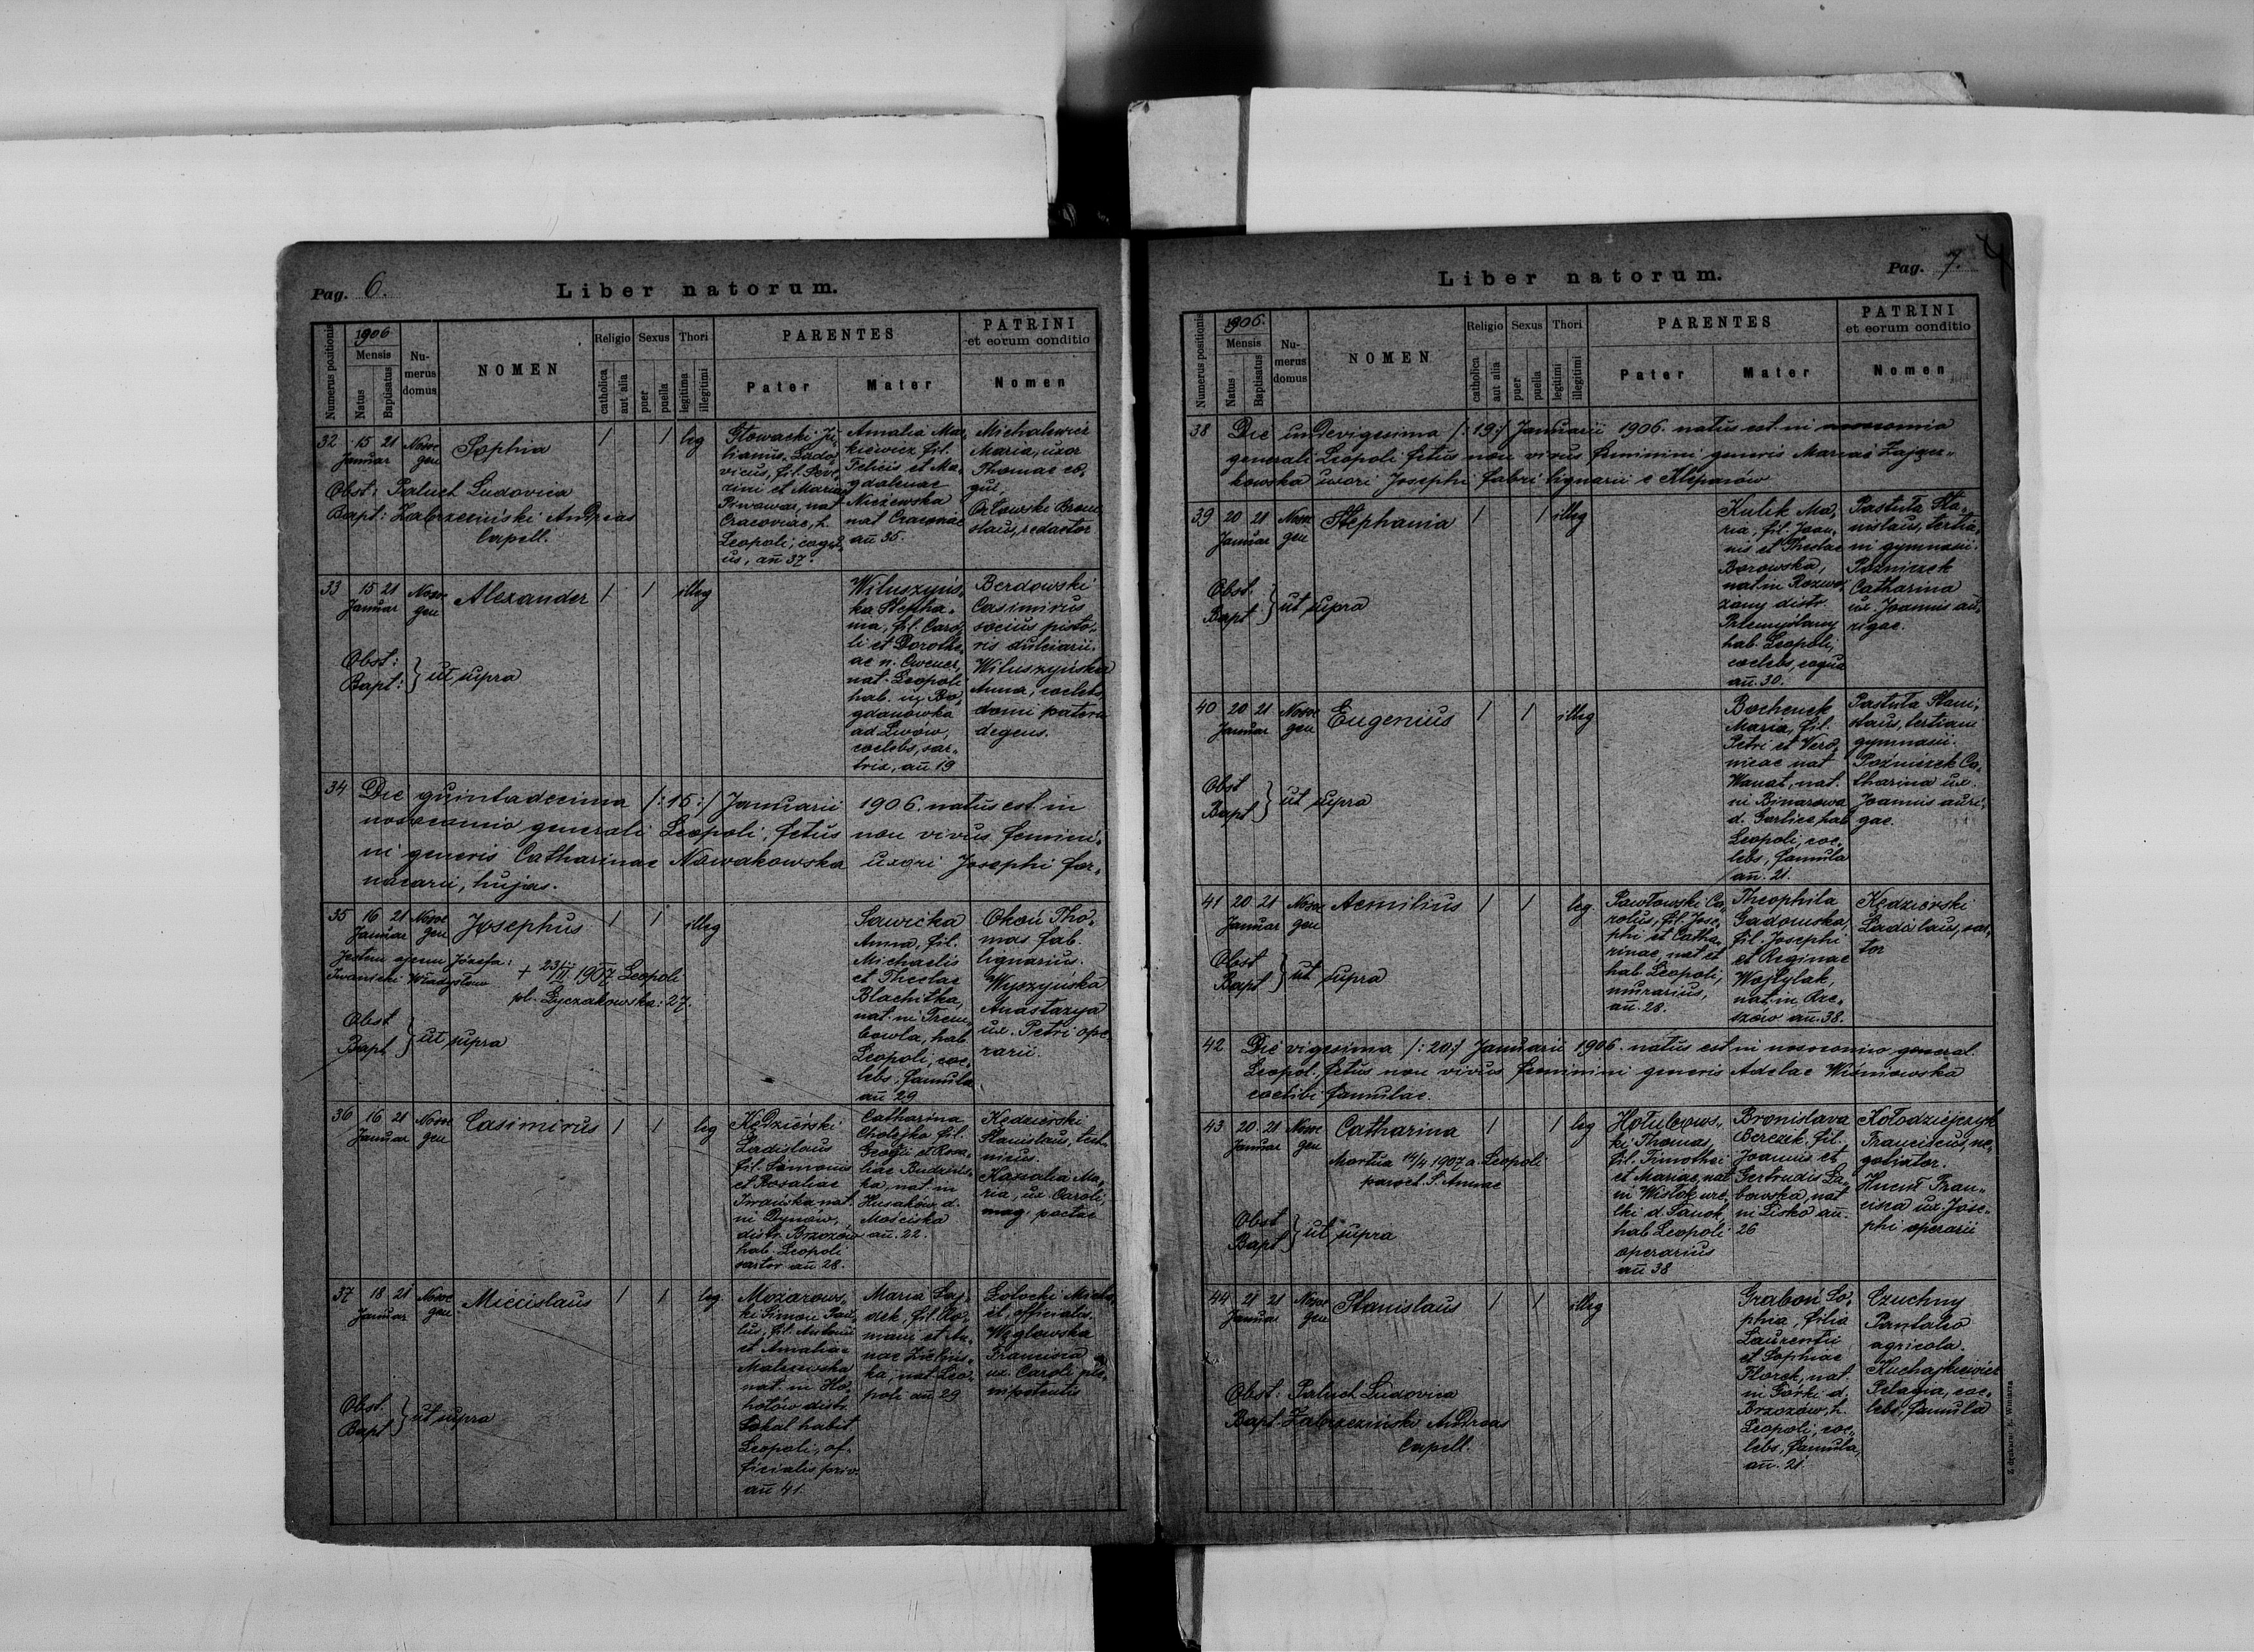 Pag. 6.
Liber natorum.
Numerus positionis
1906
Mensis
Natus
Baptisatus
Nu-
merus
domus
NOMEN
Religio
catholica
aut alia
Sexus
puer
puella
Thori
legitima
illegitimi
PARENTES
Pater
Mater
PATRINI
et eorum conditio
Nomen
32 15 21 Nosoc Sophia 1 1 leg
Januar gen
Obst: Paluch Ludovica
Bapt: Zabrzeziński Andreas
Capell.
Głowacki Ju-
lianus, Lado-
vicus, fil. Seve-
rini et Mariae
Piwowar, nat
Cracoviae, h.
Leopoli, coqu-
us, añ 37.
Amalia Mar-
kiewicz fil.
Felicis et Ma-
gdalenae
Niczewska
nat Cracoviae
añ 35.
Michalewicz
Maria, uxor
Thomae co-
qui,
Orłowski Broni-
slaus, redactor
33 15 21 Nosoc Alexander 1 1 illeg
Januar gen
Obst:
Bapt: } ut supra
Wituszyńs-
ka Stepha-
nia, fil. Caro-
li et Dorothe-
ae n. Cwener,
nat. Leopoli
hab. in Bo-
gdanowka
ad Lwów,
coelebs, sar-
trix, añ 19
Berdowski
Casimirus
socius pisto-
ris dulciarii.
Wituszyńska
Anna, coelebs
domi patern
degens.
34 Die quintadecima /:15:/ Januarii 1906. natus est in
nosocomio generali Leopoli, fetus non vivus femini-
ni generis Catharinae Nowakowska uxori Josephi for-
nacarii, hujas.
35 16 21 Nosoc Josephus 1 1 illeg
Januar gen
Jestem ojcem Józefa:
Iwanicki Władysław
+ 23/II 1907 Leopoli
pl. Łyczakowska: 27.
Obst
Bapt } ut supra
Sawicka
Anna, fil.
Michaelis
et Theclae
Blachitka,
nat. in Trem-
bowla, hab
Leopoli, coe-
lebs, famula
añ 29
Okoń Tho-
mas fab.
lignarius.
Wyszyńska
Anastazya
ux. Petri ope-
rarii.
36 16 21 Nosoc Casimirus 1 1 leg
Januar gen
Kędzierski
Ladislaus
fil. Simonis
et Rosaliae
Iwańska nat.
in Dynów,
distr. Brzozów
hab. Leopoli
sartor añ 28.
Catharina
Cholejko fil.
Georgii et Rosa-
liae Budzińs-
ka, nat. in
Husaków d.
Mościska
añ. 22.
Kędzierski
Stanislaus, tech-
nicus.
Maria, ux. Caroli,
mag.
37 18 21 Nosoc Miecislaus 1 1 leg
Januar gen
Obst.
Bapt } ut supra
Mozarows-
ki Simon Pau-
lus, fil. Antonii
et Amaliae
Malczewska
nat. in Ho-
hotów distr.
Sokal habit
Leopoli, of-
ficialis priv.
añ 41.
Maria Saj-
dek, fil. Ro-
mani et An-
nae Zielińs-
ka, nat. Leo-
poli añ 29
Łotocki Micha-
el, officialis.
Węglowska
Francisca
ux. Caroli ple-
nipotentis
Pag. 7.
Liber natorum.
Numerus positionis
1906.
Mensis
Natus
Baptisatus
Nu-
merus
domus
NOMEN
Religio
catholica
aut alia
Sexus
puer
puella
Thori
legitimi
illegitimi
PARENTES
Pater
Mater
PATRINI
et eorum conditio
Nomen
38 Die undevigesima /:19:/ Januarii 1906. natus est in nosocomio
generali Leopoli fetus non vivus feminini generis Mariae Zającz-
kowska uxori Josephi fabri lignarii e Kleparów
39 20 21 Nosoc Stephania 1 1 illeg
Januar gen
Obst.
Bapt } ut supra
Kulik Ma-
ria, fil. Joan-
nis et Theclae
Borowska,
nat. in Rozwo-
rzany distr.
Przemyślany
hab. Leopoli,
coelebs, coqua
añ. 30.
Pastuła Sta-
nislaus, tertia-
ni gymnasii.
Poźniczek
Catharina
ux. Joannis au-
rigae.
40 20 21 Nosoc Eugenius 1 1 illeg
Januar gen
Obst
Bapt } ut supra
Bochenek
Maria, fil.
Petri et Vero-
nicae nat
Wanat, nat.
in Binarowa
d. Gorlice, hab
Leopoli, coe-
lebs, famula
añ. 21.
Pastuła Stani-
slaus, tertiani
gymnasii.
Poźniczek Ca-
tharina ux.
Joannis auri-
gae.
41 20 21 Nosoc Aemilius 1 1 leg.
Januar gen
Obst
Bapt } ut supra
Pawłowski Ca-
rolus, fil. Jose-
phi et Catha-
rinae, nat et
hab. Leopoli,
murarius,
añ. 28.
Theophila
Gadomska,
fil. Josephi
et Reginae
Wojtylak,
nat. in Rze-
szów añ. 38.
Kędzierski
Ladislaus, sar-
tor
42 Die vigesima /:20:/ Januarii 1906. natus est in nosocomio general.
Leopol. fetus non vivus feminini generis Adelae Wiśniowska
coelibi famulae.
43 20. 21 Nosoc Catharina 1 1 leg
Januar gen
Mortua 14/4 1907 a. Leopoli
paroch. S. Annae
Obst
Bapt } ut supra
Hołubows-
ki Thomas,
fil. Timothei
et Mariae, nat
in Wisłok wie-
lki d. Sanok,
hab Leopoli
operarius
añ 38
Bronislava
Berezik, fil.
Joannis et
Gertrudis Ła-
bowska, nat
in Lisko añ.
26
Kołodziejczyk
Franciscus, ne-
gotiator.
Fran-
cisca ux. Jose-
phi operarii
44 21 21 Nosoc Stanislaus 1 1 illeg
Januar gen
Obst: Paluch Ludovica
Bapt. Zabrzeziński Andreas
Capell.
Grabon So-
phia, filia
Laurentii
et Sophiae
Florek, nat.
in Górki d.
Brzozów, h.
Leopoli, coe-
lebs, famula,
añ. 21.
Czuchny
Pantaleo
agricola.
Kuchajkiewicz
Pelagia, coe-
lebs, famula
Z drukarni E. Winiarza